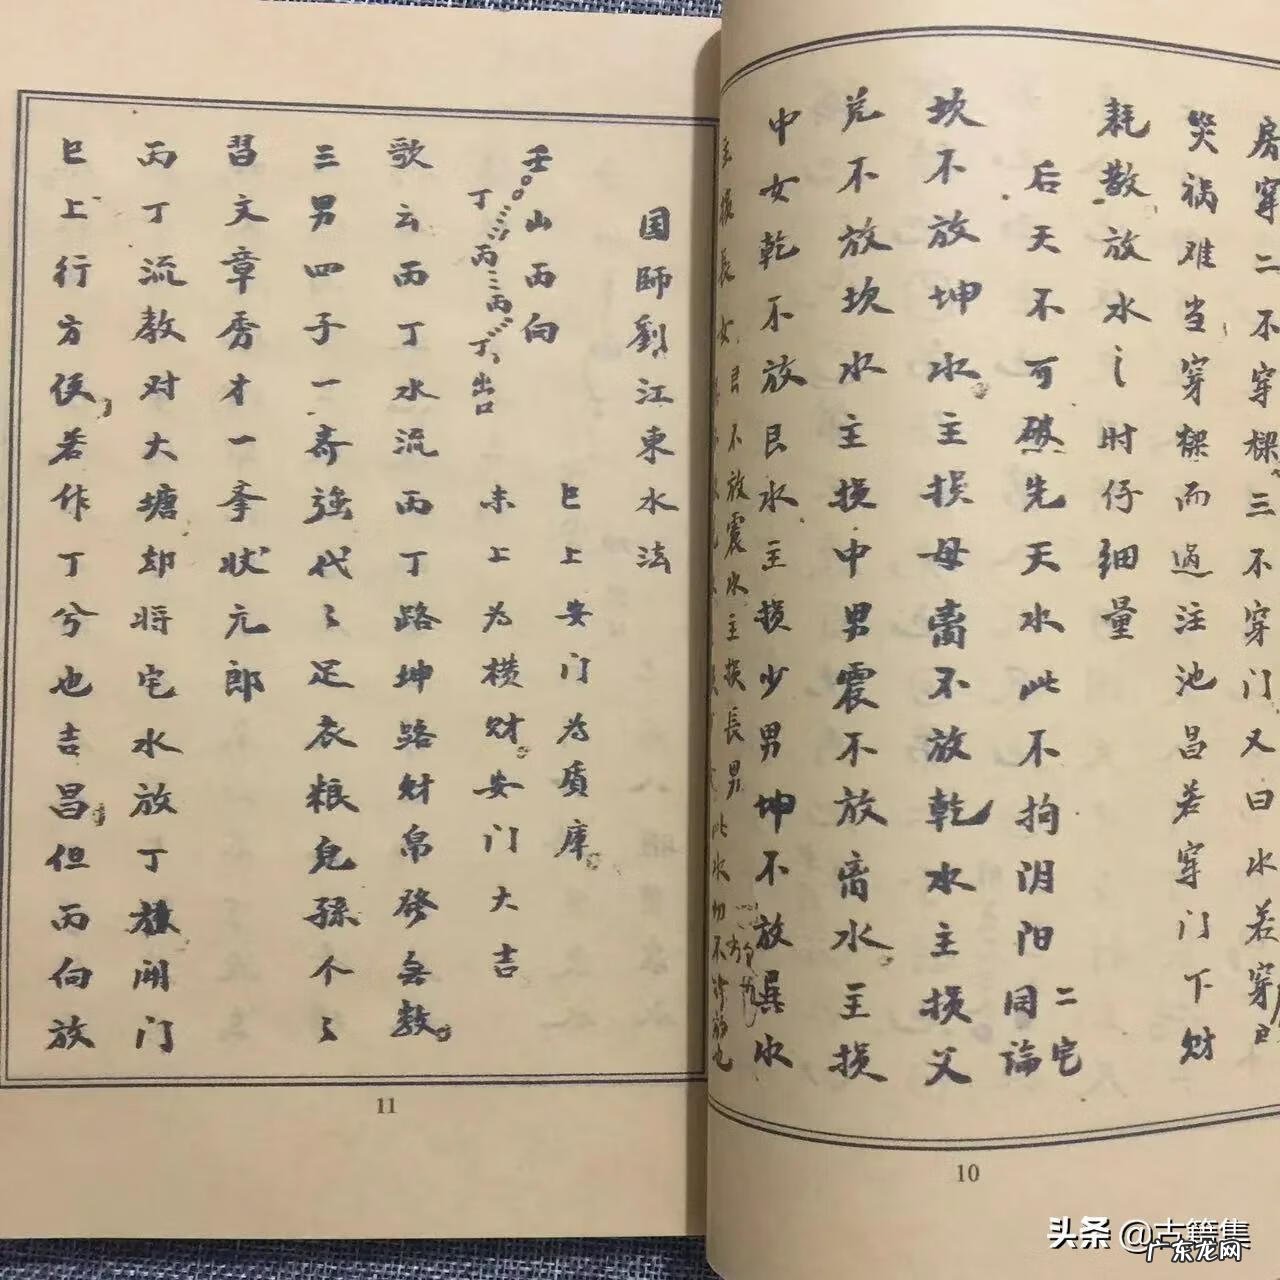 房穿二不穿樑三不穿门又曰水若穿
哭祸难当穿樑而過注池昌若穿门下财
耗散放水之时仔细量
后天不可破先天水此不拘阴阳二宅同論
坎不放坤水主损母离不放乾水主损父
兑不放坎水主损中男震不放离水主损
中女乾不放艮水主损少男坤不放巽水
不放震水主损長男 此水切不
10
国師劉江東水法
壬山丙向
丁 丙 三丙 丁 出口
巳上安门为质库
未上为横财安门大吉
歌云丙丁水流丙丁路坤路财帛發无数
三男四子一齐強代〻足衣粮兒孫个〻
習文章秀才一举状元郎
丙丁流教对大塘却将宅水放丁旗闹门
巳上行方便若作丁兮也吉昌但丙向放
11
头条 @古籍集
广东龙网